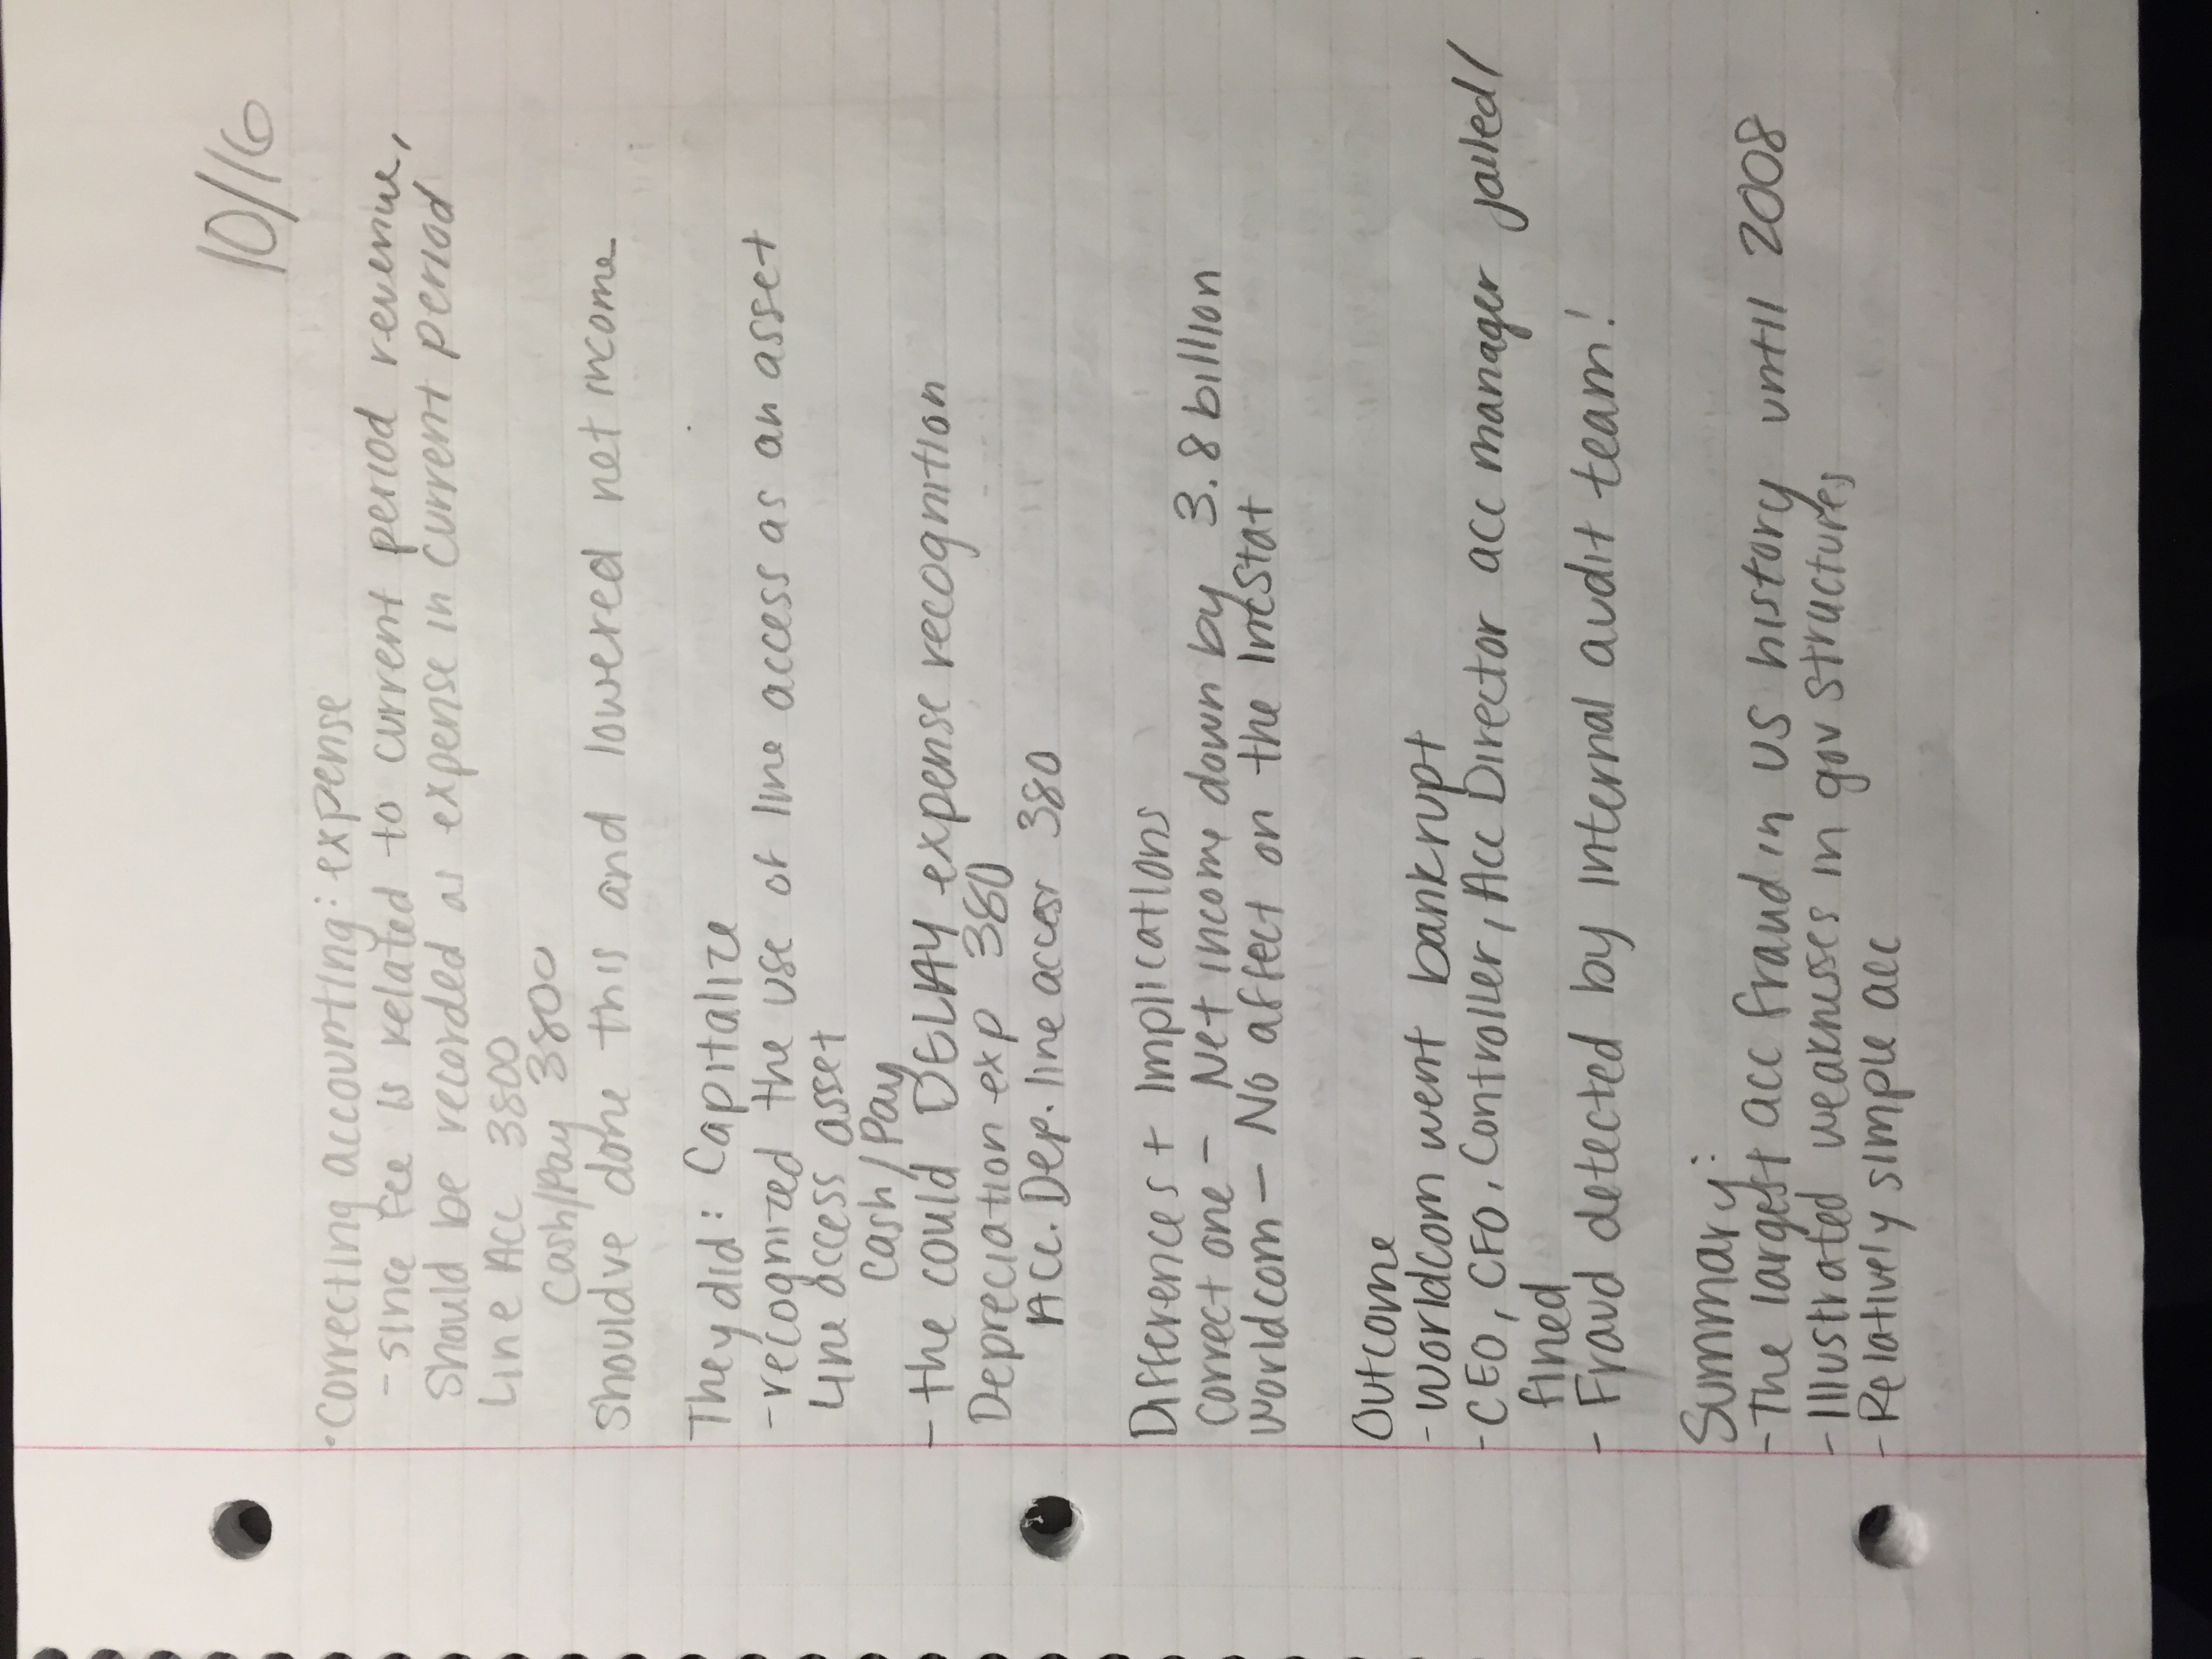 10/16
· Correcting accounting: expense
- since fee is related to current period revenue,
should be recorded as expense in current period
Line Acc 3800
Cash/Pay 3800
Should've done this and lowered net income
They did: Capitalize
- recognized the use of line access as an asset
Line access asset
Cash/Pay
- the could DELAY expense recognition
Depreciation exp 380
Acc. Dep. line access 380
Differences + Implications
Correct one - Net income down by 3.8 billion
Worldcom - No affect on the IncStat
Outcome
- Worldcom went bankrupt
- CEO, CFO, Controller, Acc Director acc manager jailed/
fined
- Fraud detected by internal audit team!
Summary:
- The largest acc fraud in US history until 2008
- Illustrated weaknesses in gov structures
- Relatively simple acc